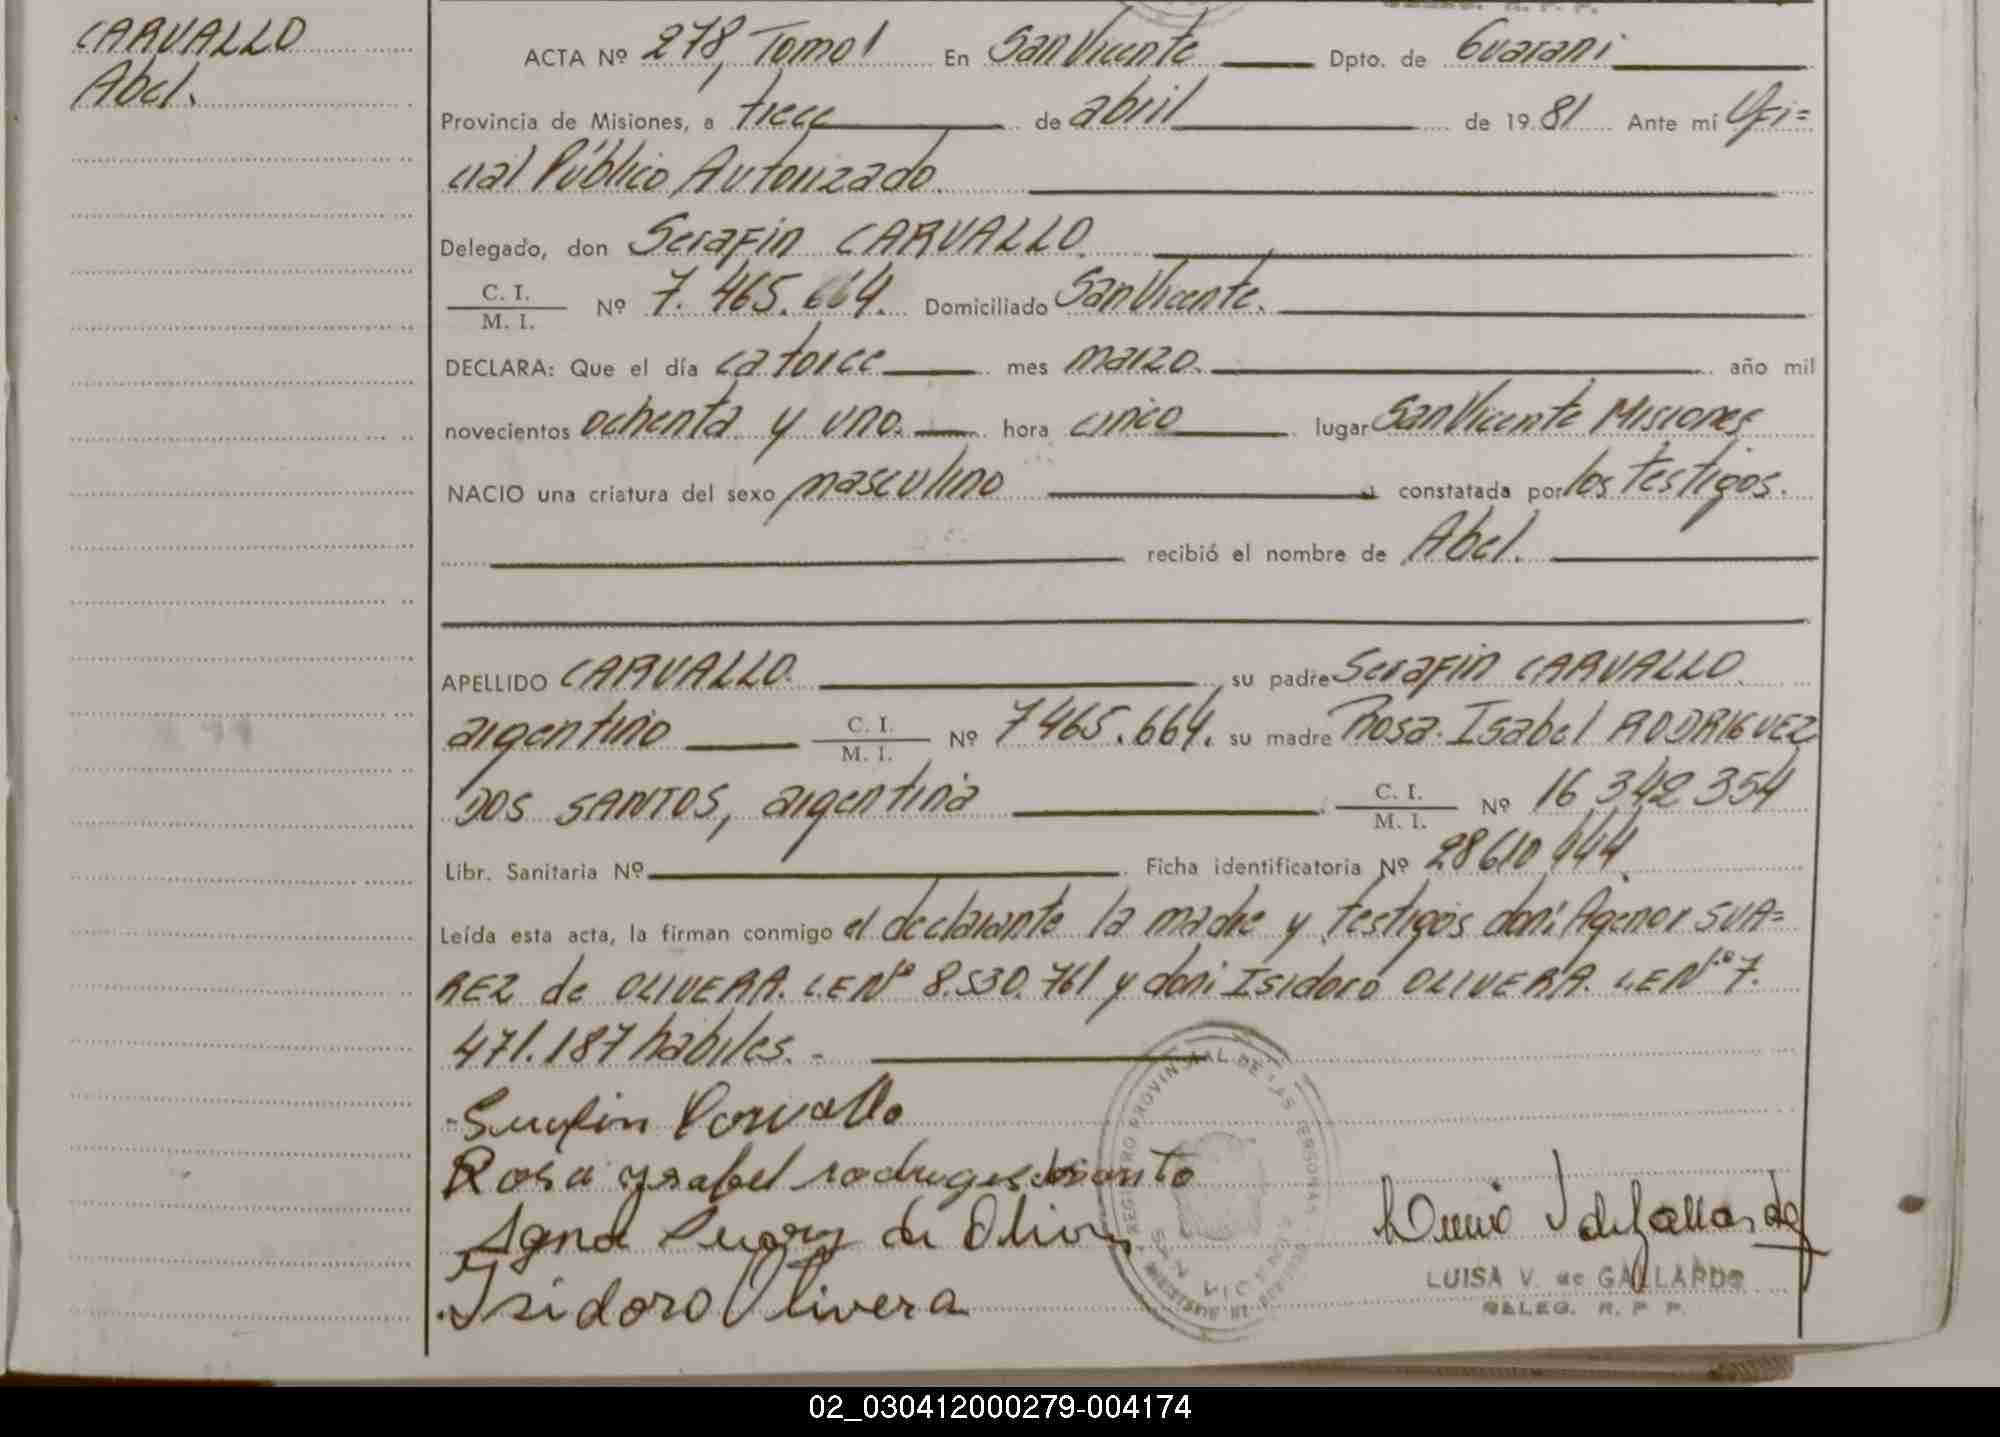 CARVALLO
Abel.
ACTA Nº 278, Tomo I En San Vicente Dpto. de Guarani
Provincia de Misiones, a trece de abril de 1981 Ante mí Ofi=
cial Público Autorizado.
Delegado, don Serafin CARVALLO.
C. I.
M. I. Nº 7.465.664. Domiciliado San Vicente.
DECLARA: Que el día catorce mes marzo. año mil
novecientos ochenta y uno. hora cinco lugar San Vicente Misiones
NACIO una criatura del sexo masculino constatada por los testigos.
recibió el nombre de Abel.
APELLIDO CARVALLO. su padre Serafin CARVALLO.
argentino C. I. M. I. Nº 7465.664. su madre Rosa Isabel RODRIGUEZ
DOS SANTOS, argentina C. I. M. I. Nº 16 342 354
Libr. Sanitaria Nº Ficha identificatoria Nº 28610444.
Leída esta acta, la firman conmigo el declarante la madre y testigos don: Agenor SUA=
REZ de OLIVERA. L.E Nº 8.530.761 y don: Isidoro OLIVERA. L.E Nº 7.
471.187 habiles.-
Serafin Carvallo
Rosa ysabel rodrigues
de Oliver
Isidoro Olivera
REGISTRO PROVINCIAL DE LAS PERSONAS
SAN VICENTE
LUISA V. de GALLARDO
DELEG. R. P. P.
02_030412000279-004174